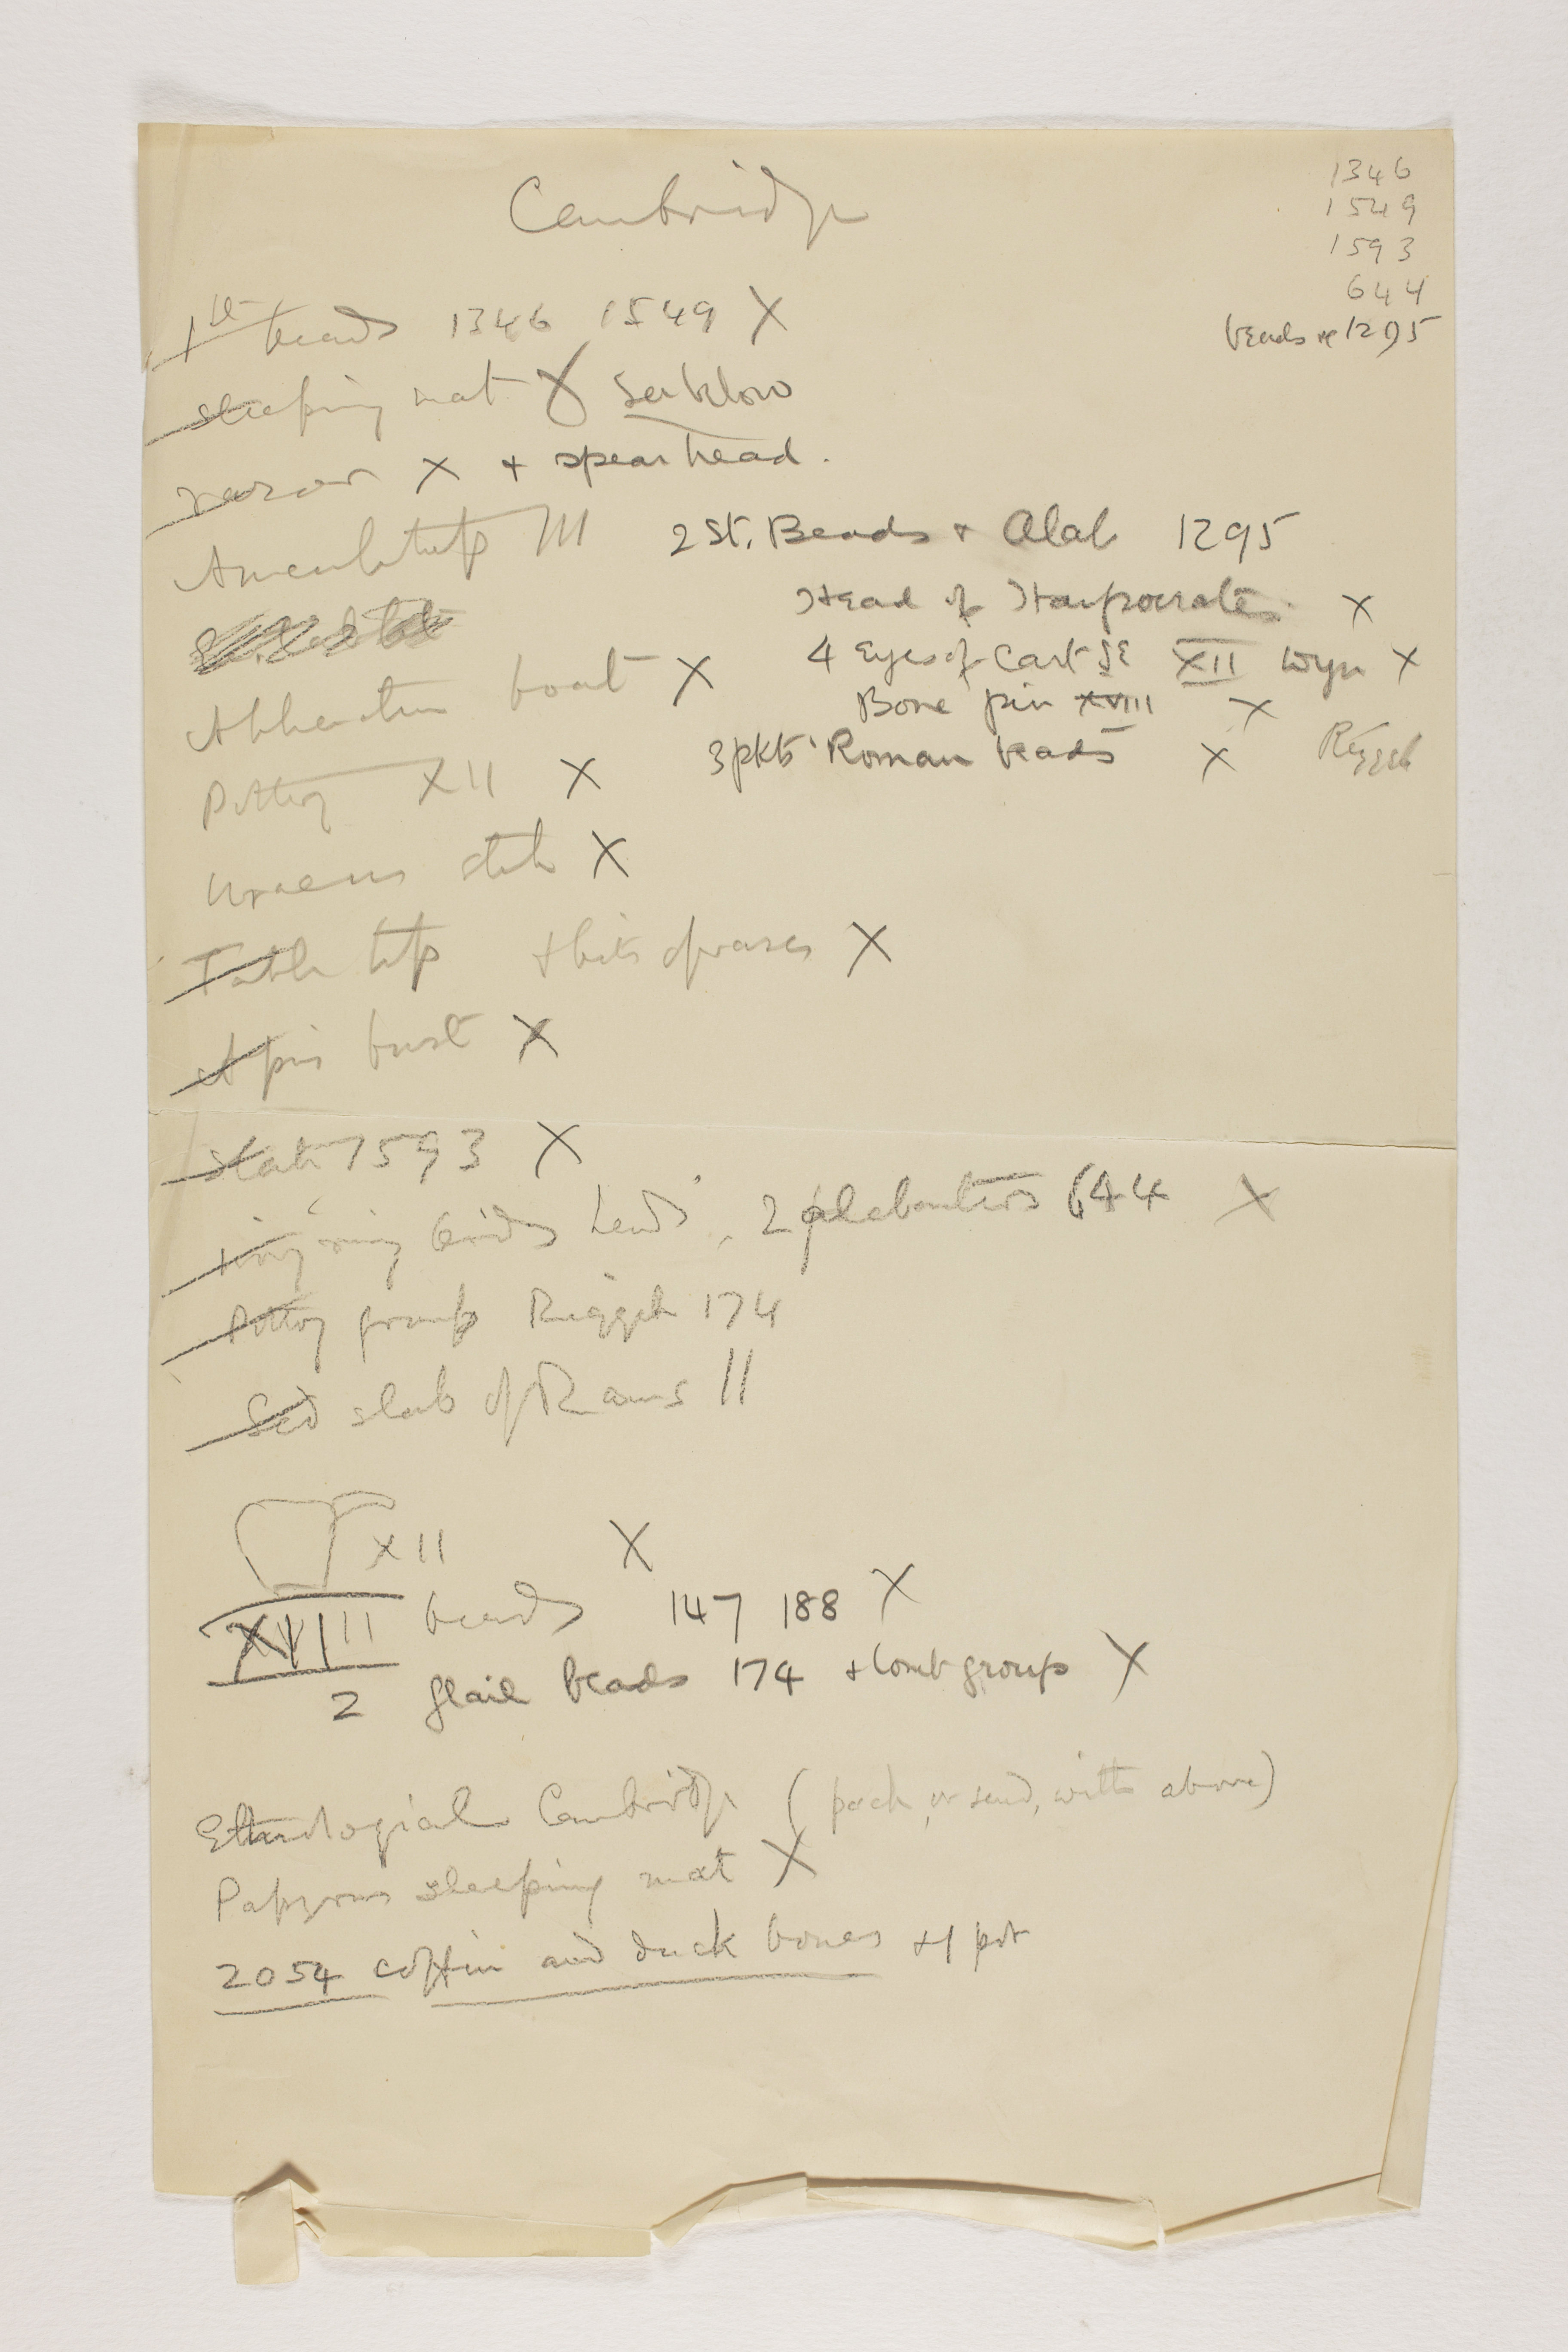 Cambridge
1346
1549
1593
644
beads 1295
1st beads 1346 1549 X
sleeping mat X
razor X + spearhead.
Amenhotep III
2 St. Beads + Alab 1295
Head of Harpocrates X
Alabaster boat X
4 Eyes of Cart XII X
Bone pin XVIII X
Pottery XII X
3 pkts Roman beads X Riqqeh
Uraeus stele X
Table top + bits of vases X
Apis bust X
slate 1593 X
ring beads, 2 alabasters 644 X
Pottery group Riqqeh 174
Sed slab of Rams II
XII X
XVIII beads 147 188 X
2 glaze beads 174 + tomb group X
Ethnological Cambridge (pack, or send, with above)
Papyrus sleeping mat X
2054 coffin and duck bones +1 pot